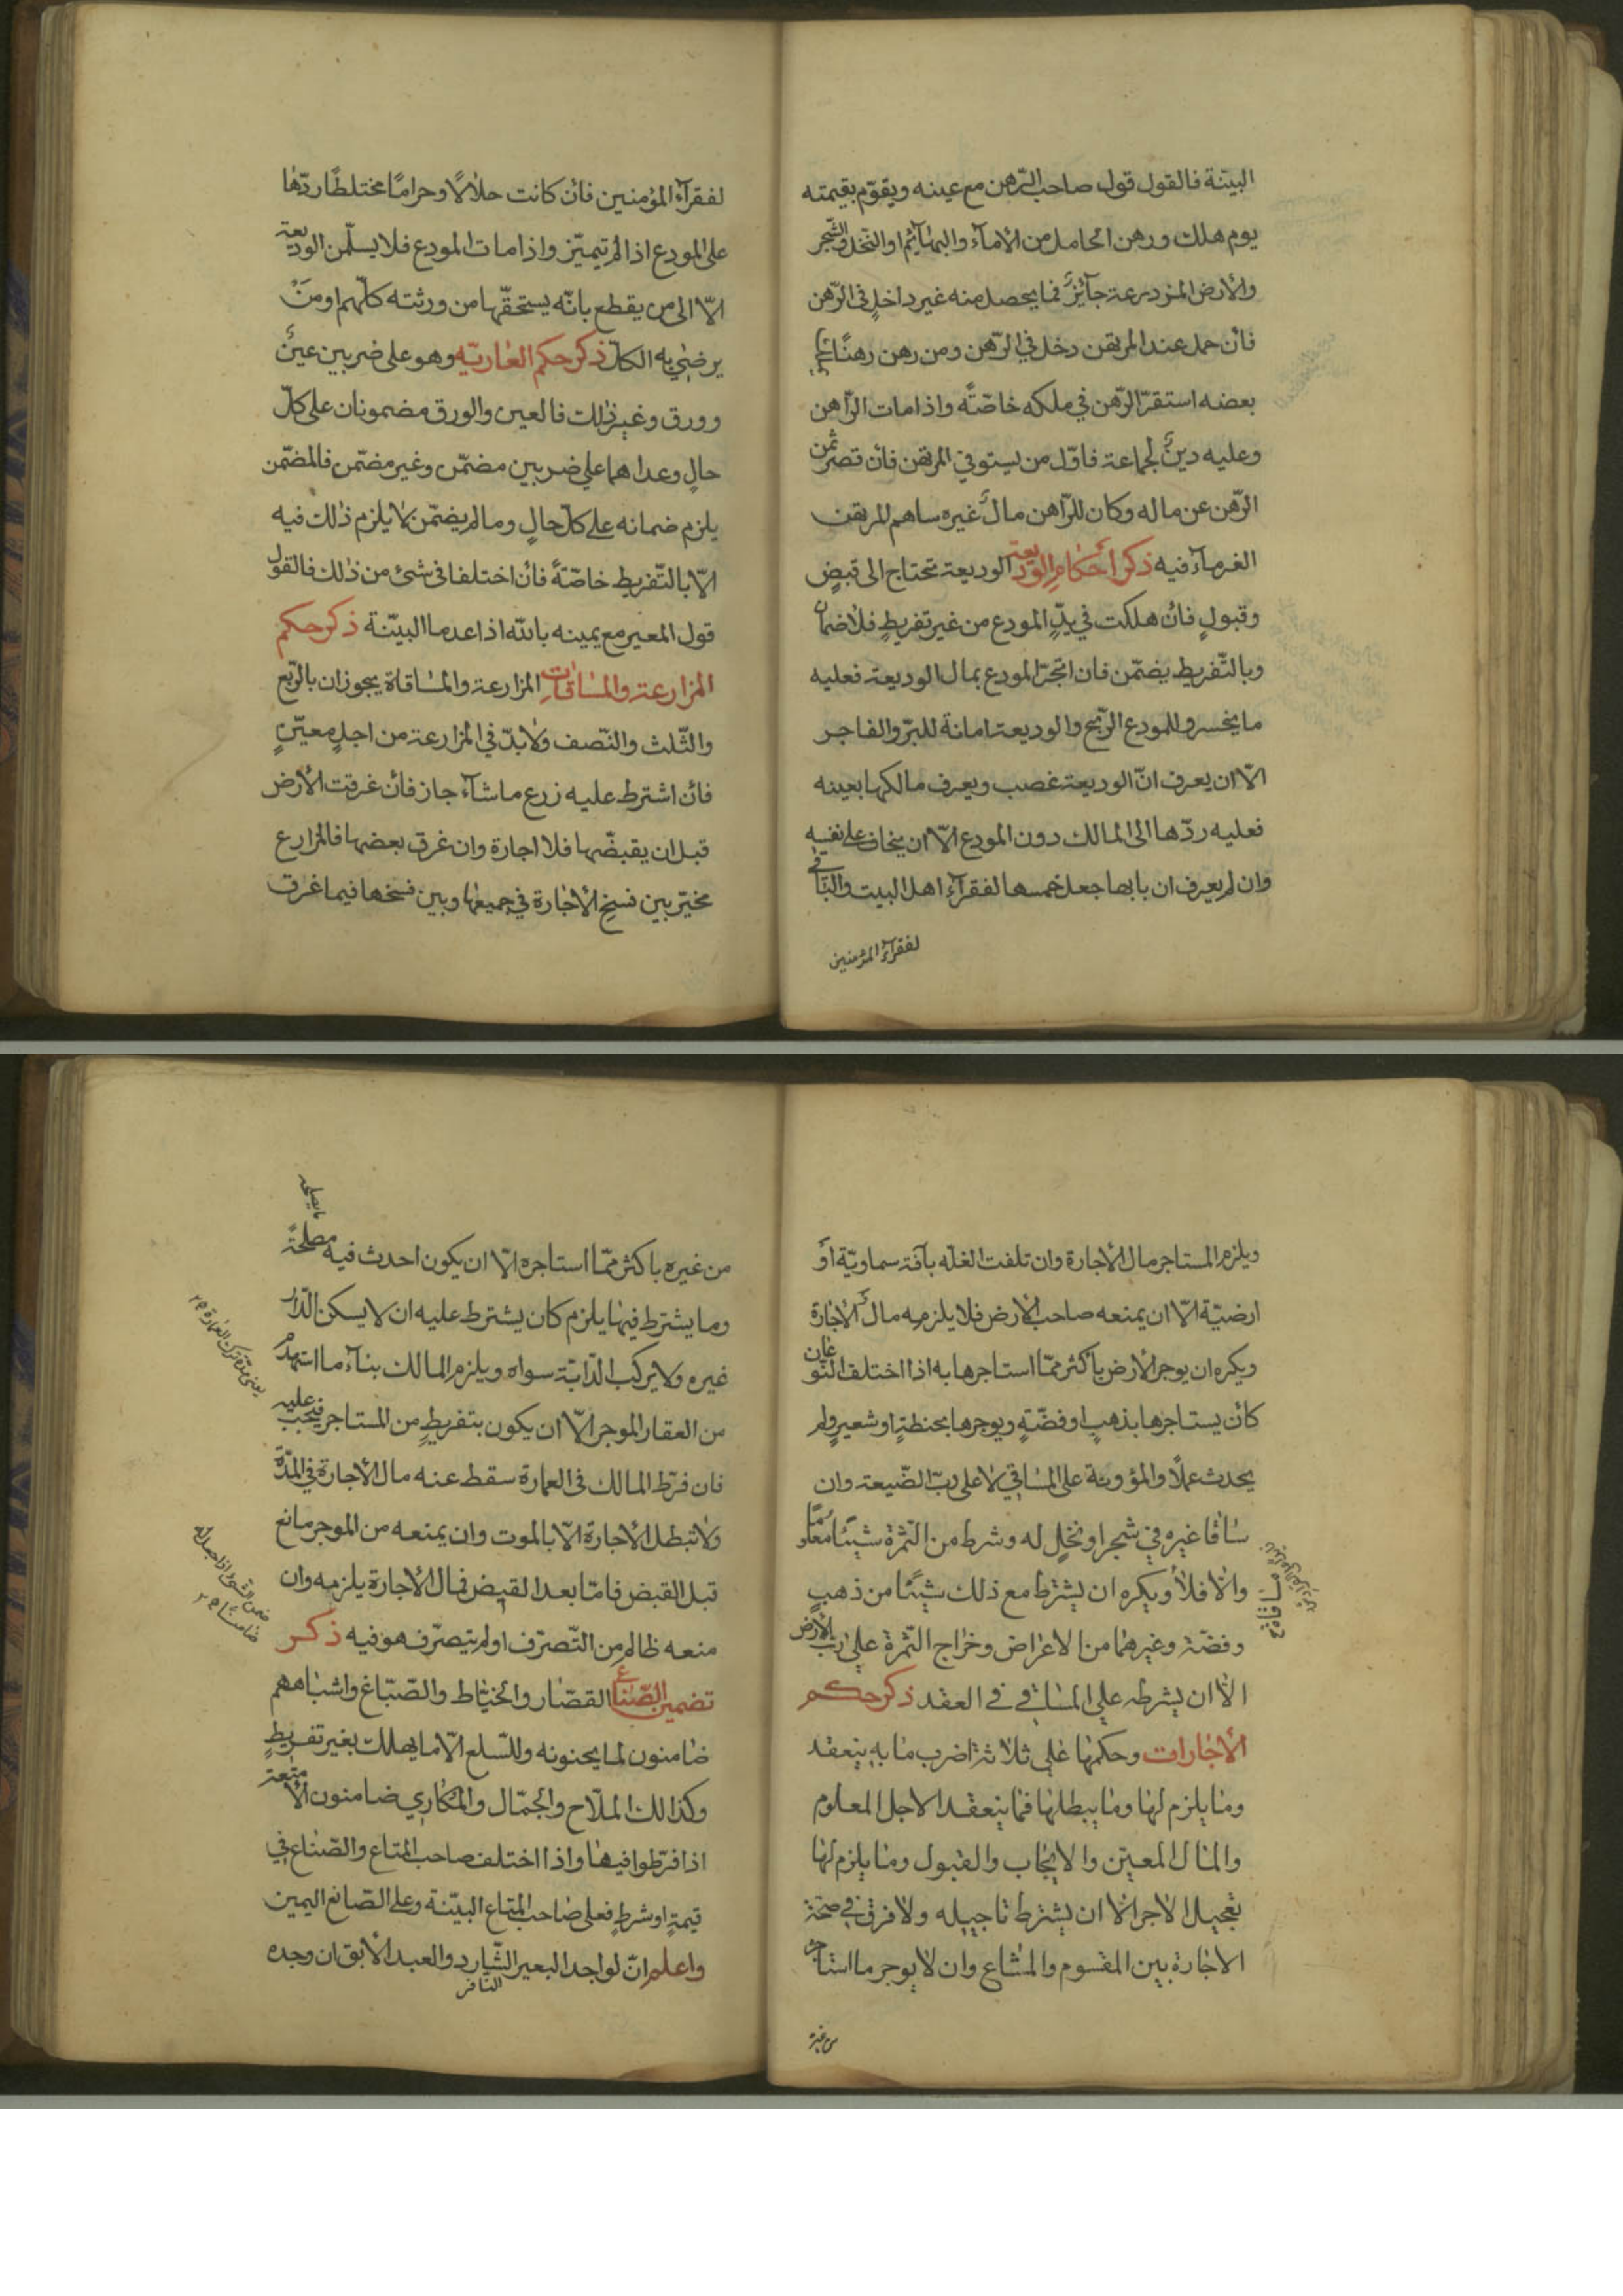 البيّنة فالقول قول صاحب الرّهن مع عينه ويقوّم بقيمته
يوم هلك ورهن الحامل من الأمآء والبهآئم او النّخل والشّجر
والأرض المزدرعة جآئزٌ فما يحصل منه غير داخلٍ في الرّهن
فأن حمل عند المرتهن دخل في الرّهن ومن رهن رهنًا
بعضه استقرّ الرّهن في ملكه خاصّتًه واذا مات الرّاهن
وعليه دينٌ لجماعة فاوّل من يستوفي المرتهن فأن قصر ثمن
الرّهن عن ماله وكان للرّاهن مالٌ غيره ساهم المرتهن
الغرمآء فيه ذكر أحكام الوديعة الوديعة تحتاج الى قبضٍ
وقبولٍ فأن هلكت في يدِ المودع من غير تفريطٍ فلا ضمان
وبالتّفريط يضمّن فان اتّجر المودع بمال الوديعة فعليه
ما يخسر وللمودع الرّبح والوديعة امانة للبرّ والفاجر
الّا ان يعرف انّ الوديعة غصب ويعرف مالكها بعينه
فعليه ردّها الى المالك دون المودع الّا ان يخاف على نفسه
وان لم يعرف ان بابها جعل خمسها لفقرآء اهل البيت والباقي
لفقرآء المؤمنين
لفقرآء المؤمنين فأن كانت حلالًا وحرامًا مختلطًا ردّها
على المودع اذا لم يتميّز واذا مات المودع فلا يسلّمن الوديعة
الّا الى من يقطع بانّه يستحقّها من ورثته كلّهم او مَنْ
يرضي به الكلّ ذكر حكم العاريّه وهو على ضربين عينٌ
وورق وغير ذلك فالعين والورق مضمونان على كلّ
حالٍ وعداهما على ضربين مضمّن وغير مضمّن فالمضمّن
يلزم ضمانه على كلّ حالٍ وما لم يضمّن لا يلزم ذلك فيه
الّا بالتّفريط خاصّتهً فأن اختلفا في شئ من ذلك فالقول
قول المعير مع يمينه بالله اذا عدما البيّنة ذكر حكم
المزارعة والمساقات المزارعة والمساقاة يجوزان بالرّبع
والثّلث والنّصف ولا بدّ في المزارعة من اجلٍ معيّنٍ
فأن اشترط عليه زرع ما شآء جاز فأن غرقت الأرض
قبل ان يقبضّها فلا اجارة وان غرق بعضها فالمزارع
مخيّر بين فسخ الأجارة في جميعها وبين فسخها فيما غرق
ويلزم المستاجر مال الأجارة وان تلفت الغلّه بآفة سماويّة اوْ
ارضيّة الّا ان يمنعه صاحب الأرض فلا يلزمه مال الأجارة
ويكره ان يوجر الأرض بأكثر ممّا استاجرها به اذا اختلف النّوعان
كأن يستاجرها بذهبٍ او فضّةٍ ويوجرها بحنطةٍ او شعيرٍ ولم
يحدث عملًا والمؤونة على المساقي لا على ربّ الضّيعة وان
ساقا غيره في شجر او نخلٍ له وشرط من الثّمرة شيئًا معلومًا
والّا فلا ويكره ان يشترط مع ذلك شيئًا من ذهبٍ
وفضّة وغيرهما من الاعراض وخراج الثّمرة على ربّ الأرض
الّا ان يشرطه على المساقي في العقد ذكر حكم
الأجارات وحكمها على ثلاثة اضرب ما به ينعقد
وما يلزم لها وما يبطلها فما ينعقد الاجل المعلوم
والمال المعيّن والايجاب والقبول وما يلزم لها
تعجيل الاجر الّا ان يشترط تاجيله ولا فرق في صحّة
الاجارة بين المقسوم والمشاع وان لا يوجر ما استاجره
من غيره
ما يصلحه
من غيره باكثر ممّا استاجره الّا ان يكون احدث فيه مصلحةً
وما يشترط فيها يلزم كان يشترط عليه ان لا يسكن الدّار
غيره ولا يركب الدّابّة سواه ويلزم المالك بنآء ما استهدم
من العقار الموجر الّا ان يكون بتفريطٍ من المستاجر فيجب عليه
فان فرّط المالك في العمارة سقط عنه مال الأجارة في المدّة
يعني مدّة ترك العمارة
ولا تبطل الأجارة الّا بالموت وان يمنعه من الموجر مانع
قبل القبض فامّا بعد القبض فمال الأجارة يلزمه وان
ضمن الشئ اذا جعل له ضامنًا
منعه ظالم من التّصرّف او لم يتصرّف هو فيه ذكر
تضمين الصّنّاع القصّار والخيّاط والصّبّاغ واشباههم
ضامنون لما يجنونه وللسّلع الّا ما يهلك بغير تفريطٍ
وكذالك الملّاح والجمّال والمكاري ضامنون الأمتعة
اذا فرّطوا فيها واذا اختلف صاحب المتاع والصّنّاع في
قيمةٍ او شرطٍ فعلى صاحب المتاع البيّنة وعلى الصّانع اليمين
واعلم انّ لواجد البعير الشّارد والعبد الأبق ان وجده
النّافر